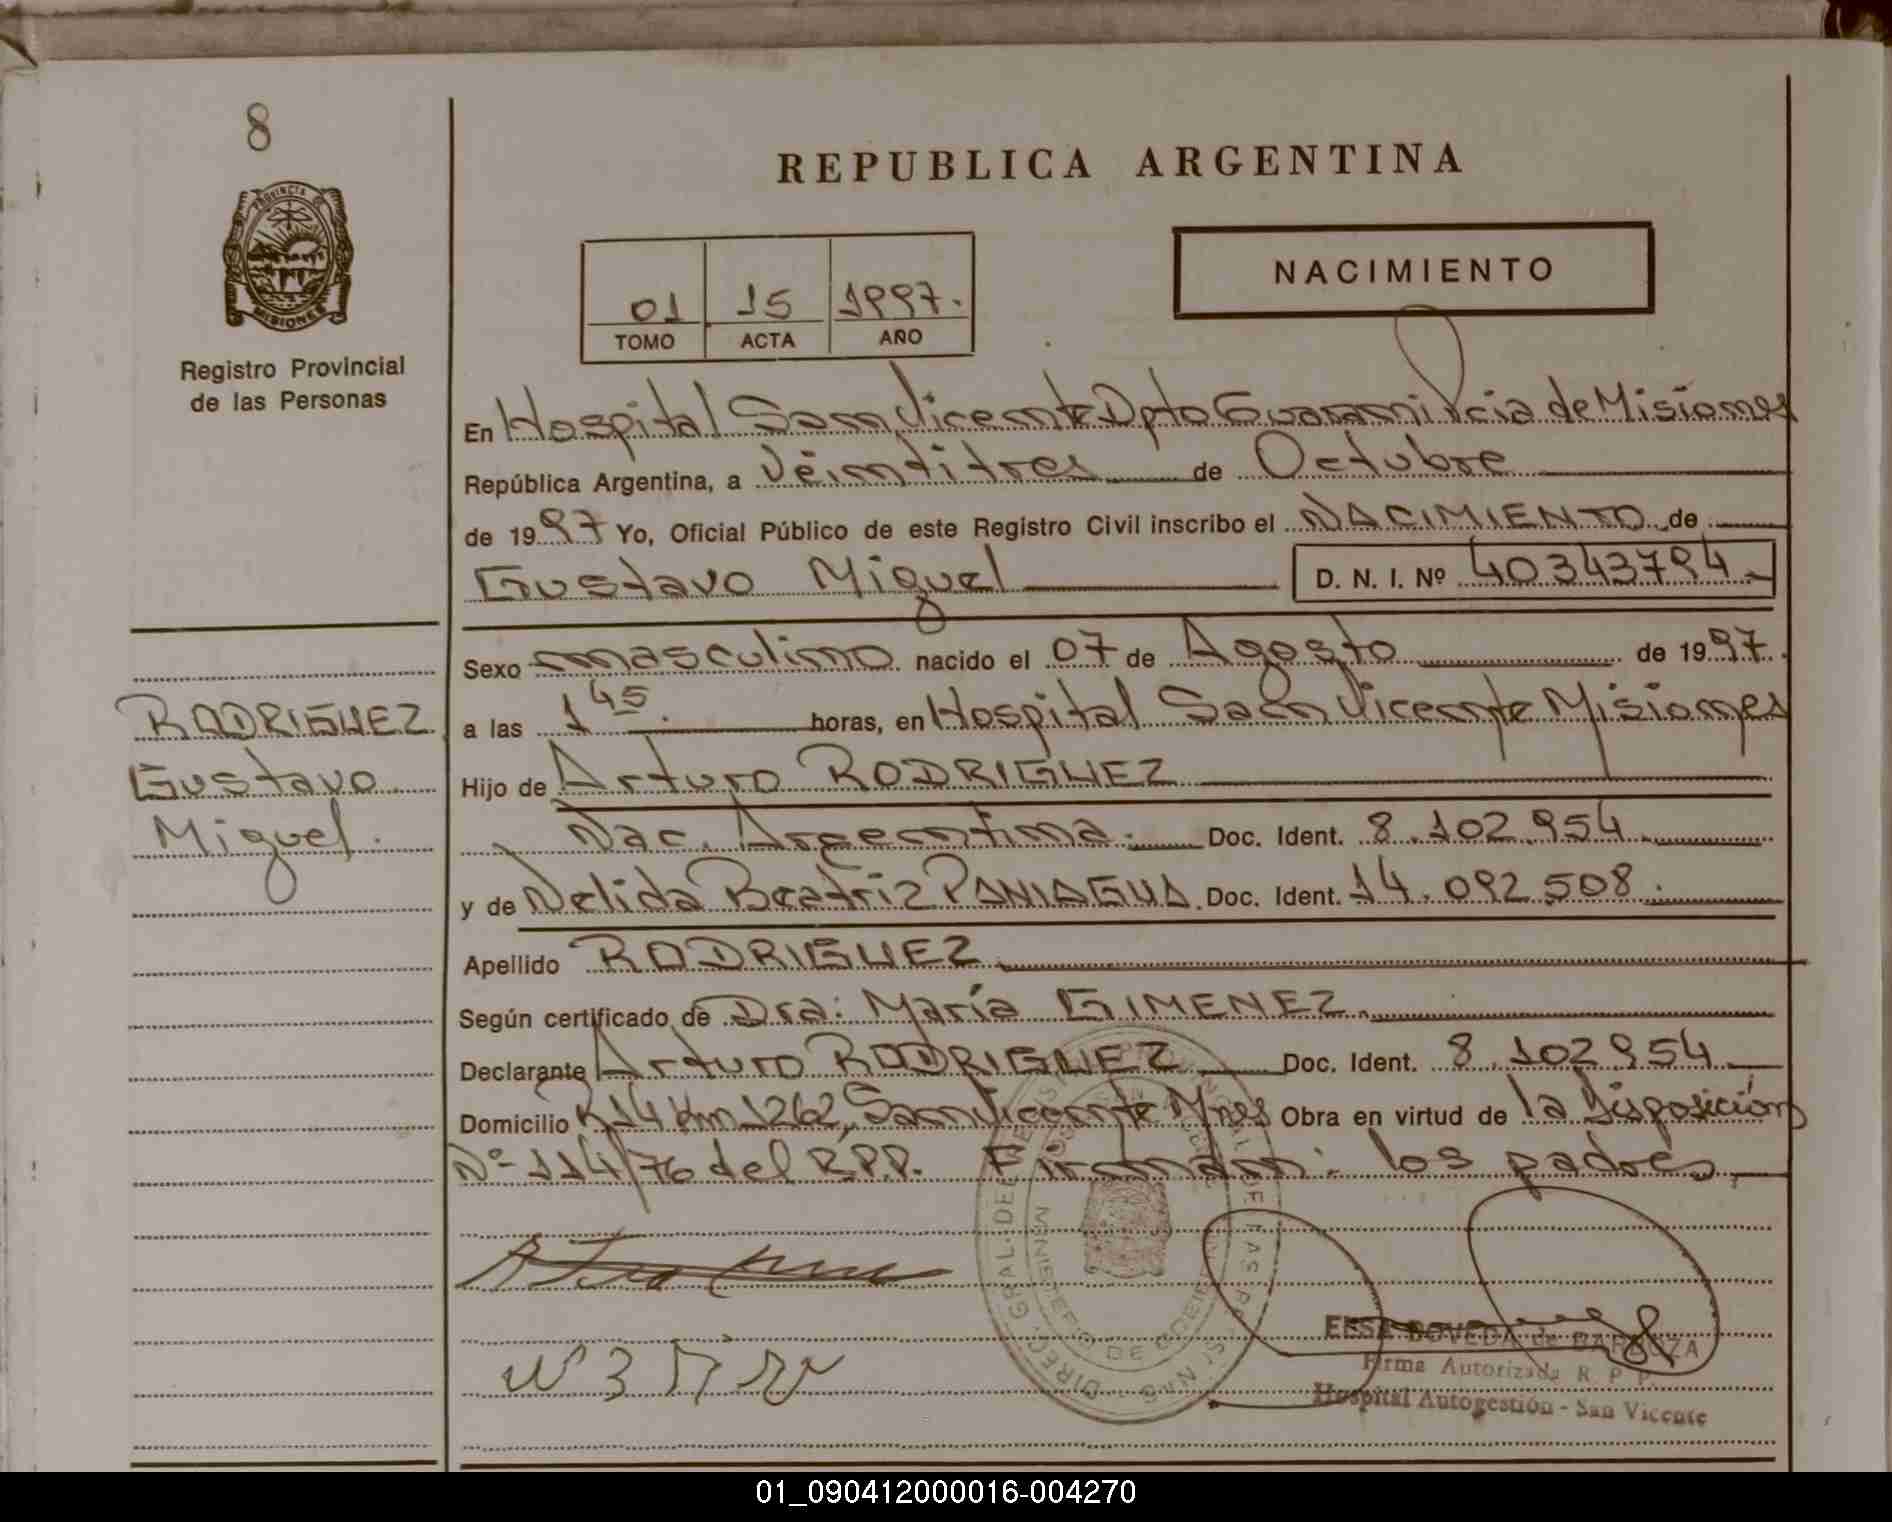 8
PROVINCIA DE
MISIONES
Registro Provincial
de las Personas
RODRIGUEZ
Gustavo
Miguel.
REPUBLICA ARGENTINA
01 15 1997.
TOMO ACTA AÑO
NACIMIENTO
En Hospital San Vicente Dpto Guarani Pcia de Misiones
República Argentina, a Veintitres de Octubre
de 1997 Yo, Oficial Público de este Registro Civil inscribo el NACIMIENTO de
Gustavo Miguel D. N. I. Nº 40343794
Sexo masculino nacido el 07 de Agosto de 1997.
a las 1 45. horas, en Hospital San Vicente Misiones
Hijo de Arturo RODRIGUEZ
Nac. Argentina. Doc. Ident. 8.102.954.
y de Nelida Beatriz PANIAGUA. Doc. Ident. 14.092.508.
Apellido RODRIGUEZ
Según certificado de Dra: María GIMENEZ.
Declarante Arturo RODRIGUEZ Doc. Ident. 8.102.954.
Domicilio R14 Km 1262, San Vicente Mnes Obra en virtud de la Disposición
Nº 114/76 del R.P.P. Firman: los padres
ELSA BOVEDA de BARBOZA
Firma Autorizada R. P. P.
Hospital Autogestión - San Vicente
01_090412000016-004270